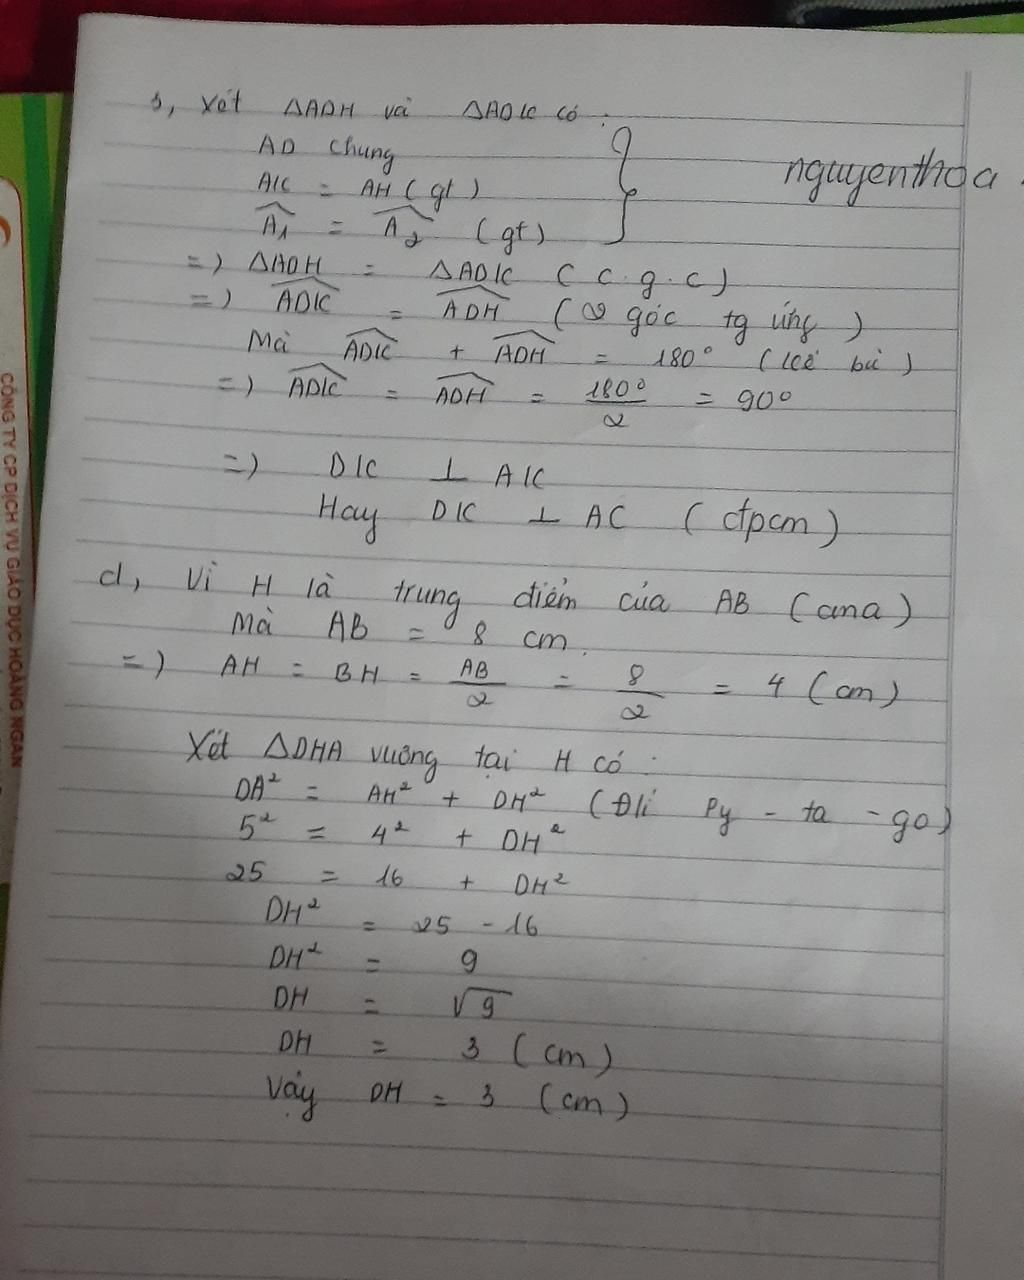 3, Xét ΔADH và ΔADK có :
AD chung
AK = AH (gt)
nguyenthoa
Â1 = Â2 (gt)
=) ΔADH = ΔADK (c.g.c)
=) ADK = ADH (2 góc tg ứng)
Mà ADK + ADH = 180° (kề bù)
=) ADK = ADH = 180°/2 = 90°
=) DK ⊥ AK
Hay DK ⊥ AC (đpcm)
d, Vì H là trung điểm của AB (cma)
Mà AB = 8 cm.
=) AH = BH = AB/2 = 8/2 = 4 (cm)
Xét ΔDHA vuông tại H có :
DA² = AH² + DH² (Đlí Py - ta - go)
5² = 4² + DH²
25 = 16 + DH²
DH² = 25 - 16
DH² = 9
DH = √9
DH = 3 (cm)
Vậy DH = 3 (cm)
CÔNG TY CP DỊCH VỤ GIÁO DỤC HOÀNG NGÂN